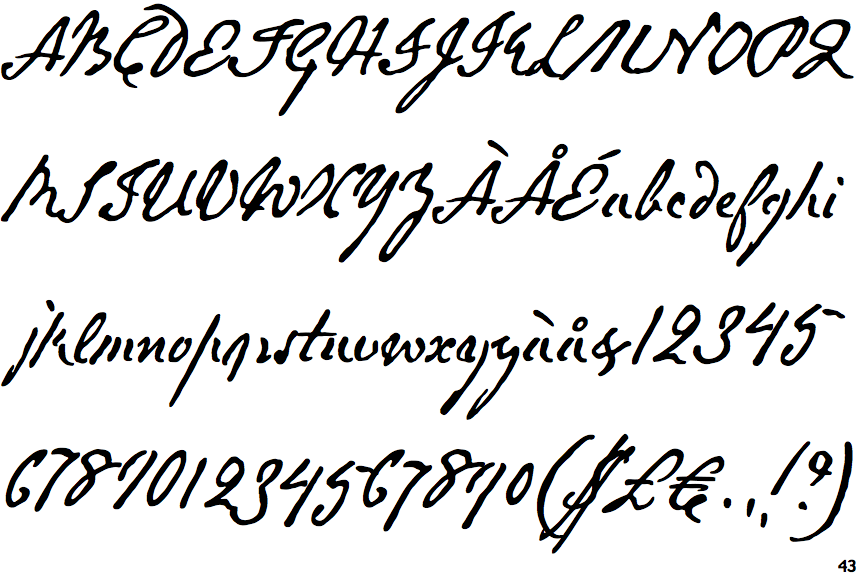 ABCDEFGHIJKLMNOPQ
RSTUVWXYZÀÅÉabcdefghi
jklmnopqrstuvwxyzàå&12345
678901234567890($£€.,!?)
43